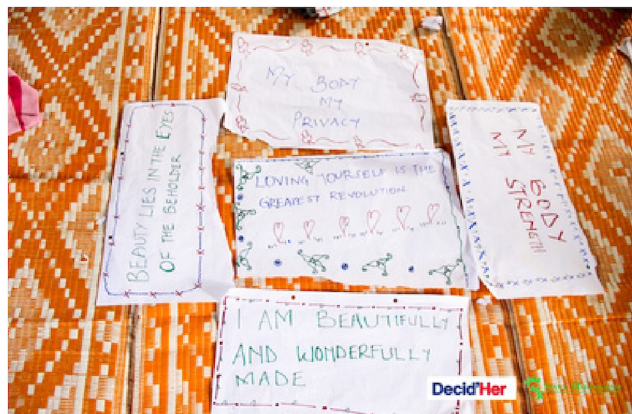 MY BODY
MY
PRIVACY
BEAUTY LIES IN THE EYES
OF THE BEHOLDER
LOVING YOURSELF IS THE
GREAPEST REVOLUTION
MY BODY
MY STRENGTH
I AM BEAUTIFULLY
AND WONDERFULLY
MADE
Decid'Her